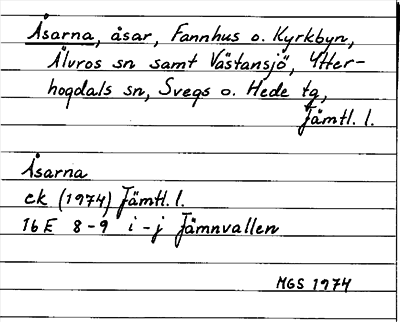 Åsarna, åsar, Fannhus o. Kyrkbyn,
Älvros sn samt Västansjö, Ytter-
hogdals sn, Svegs o. Hede tg,
Jämtl. l.
Åsarna
ek (1974) Jämtl. l.
16E 8-9 i-j Jämnvallen
MGS 1974